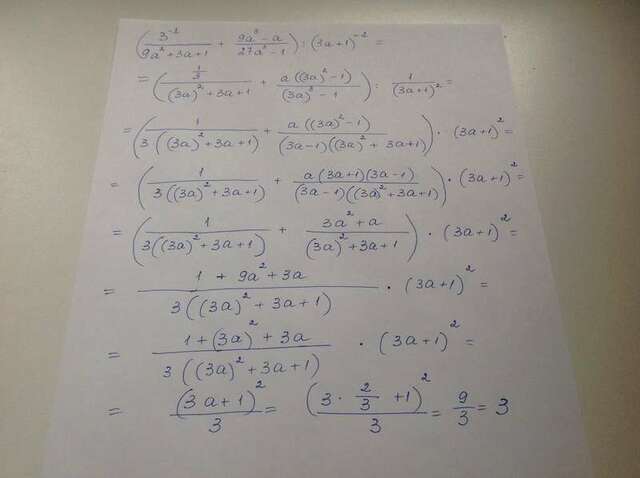 (3⁻¹/(9a²+3a+1) + (9a³-a)/(27a³-1)) : (3a+1)⁻² =
= ((1/3)/((3a)²+3a+1) + a((3a)²-1)/((3a)³-1)) : 1/(3a+1)² =
= (1/(3·((3a)²+3a+1)) + a((3a)²-1)/((3a-1)((3a)²+3a+1))) · (3a+1)² =
= (1/(3((3a)²+3a+1)) + a(3a+1)(3a-1)/((3a-1)((3a)²+3a+1))) · (3a+1)² =
= (1/(3((3a)²+3a+1)) + (3a²+a)/((3a)²+3a+1)) · (3a+1)² =
= (1+9a²+3a)/(3((3a)²+3a+1)) · (3a+1)² =
= (1+(3a)²+3a)/(3((3a)²+3a+1)) · (3a+1)² =
= (3a+1)²/3 = (3·2/3+1)²/3 = 9/3 = 3